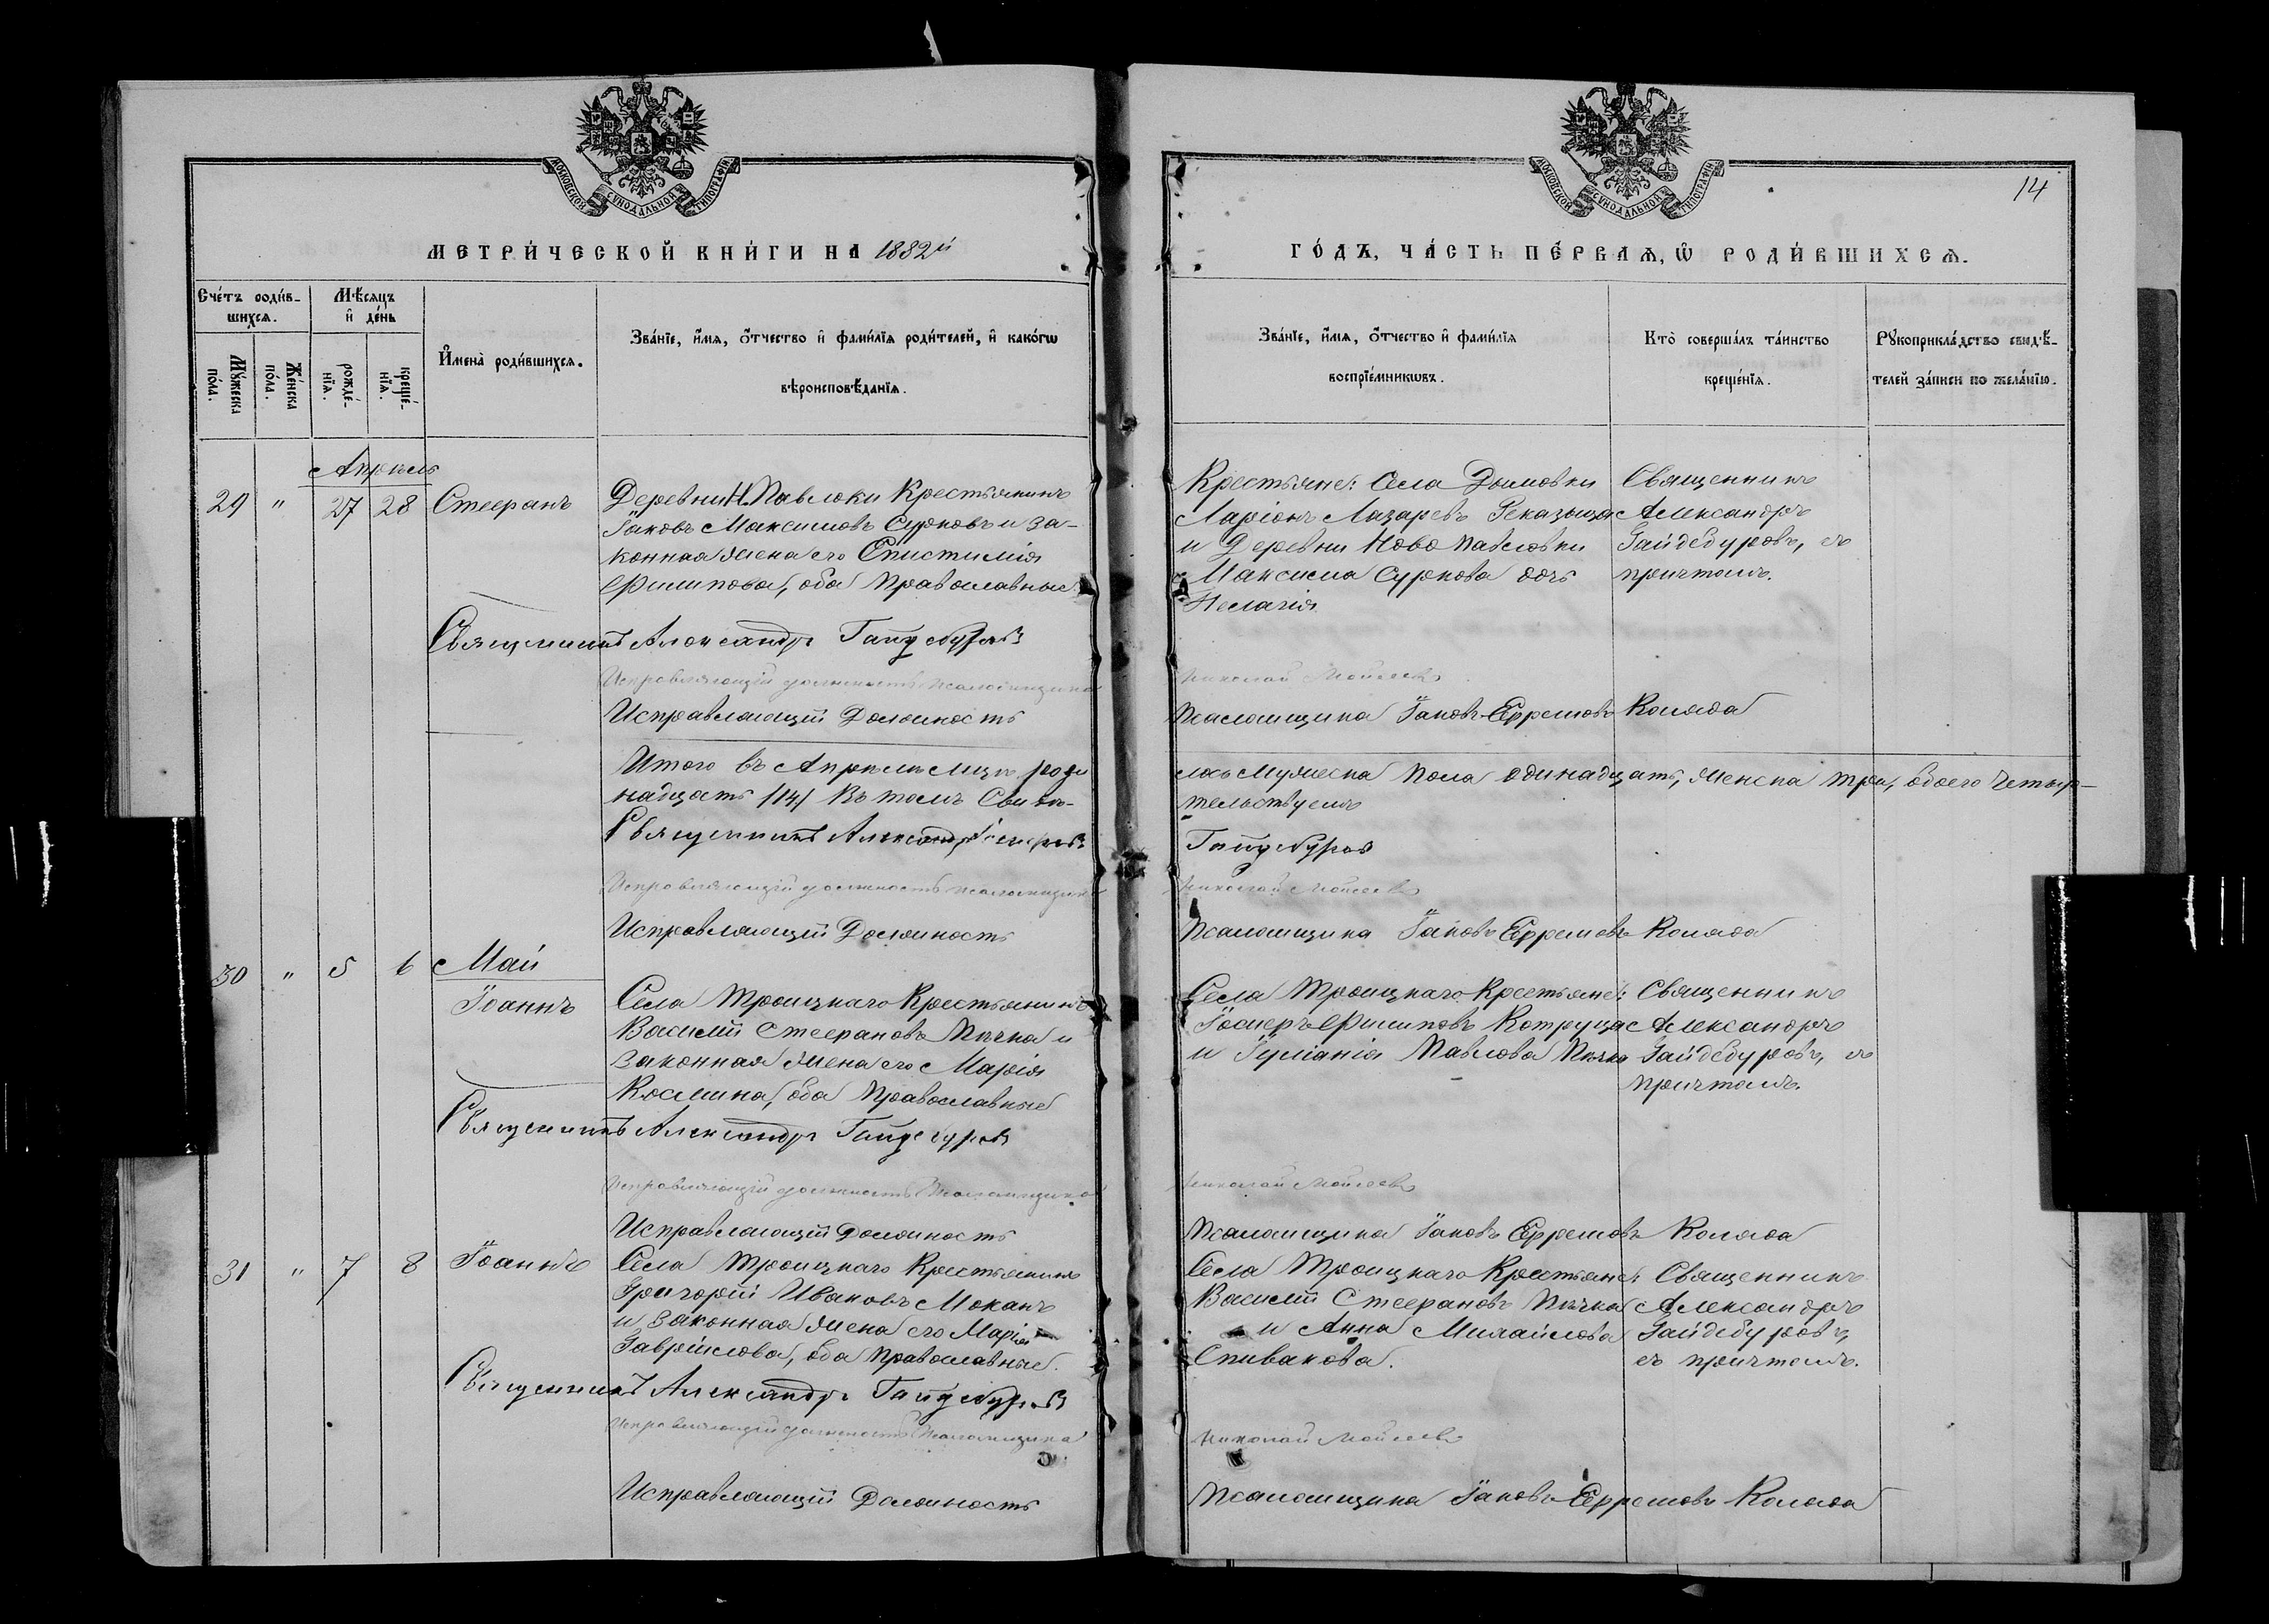 МОСКОВСКОЙ СѴНОДАЛЬНОЙ ТИПОГРАФІИ
МЕТРИ́ЧЕСКОЙ КНИ́ГИ НА 1882й
Сче́тъ роди́в-
шихсѧ.
Мѣ́сѧцъ
и҆ де́нь
Мꙋ́жеска
по́ла.
Же́нска
по́ла.
рожде́-
нїѧ.
креще́-
нїѧ.
И҆мена̀ роди́вшихсѧ.
Зва́нїе, и҆́мѧ, ѻ҆́тчество и҆ фами́лїѧ роди́телей, и҆ како́гѡ
вѣроисповѣ́данїѧ.
Апрѣль
29 " 27 28 Стефанъ
Деревни Н. Павловки Крестьянинъ
Іаковъ Максимовъ Сурковъ и за-
конная жена его Епистимія
Филипова, оба Православные
Священникъ Александръ Гайдебуровъ
Исправляющій должность псаломщика
Исправляющій Должность
Итого въ Апрѣлѣ мцѣ роди
надцать /14/ Въ томъ Свидѣ-
Священникъ Александръ
Исправляющій должность псаломщика
Исправляющій Должность
30 " 5 6 Май
Іоаннъ
Села Троицкаго Крестьянинъ
Василій Стефановъ Пѣчка и
законная жена его Марія
Космина, оба Православные
Священникъ Александръ Гайдебуровъ
Исправляющій должность Псаломщика
Исправляющій Должность
31 " 7 8 Іоаннъ
Села Троицкаго Крестьянинъ
Григорій Ивановъ Моканъ
и законная жена его Марія
Гавріилова, оба Православные.
Священникъ Александръ Гайдебуровъ
Исправляющій должность Псаломщика
Исправляющій Должность
МОСКОВСКОЙ СѴНОДАЛЬНОЙ ТИПОГРАФІИ
14
ГО́ДЪ, ЧА́СТЬ ПЕ́РВАѦ, Ѡ҆ РОДИ́ВШИХСѦ.
Зва́нїе, и҆́мѧ, ѻ҆́тчество и҆ фами́лїѧ
воспрїе́мникѡвъ.
Кто̀ соверша́лъ та́инство
креще́нїѧ.
Рꙋкоприкла́дство свидѣ́-
телей за́писи по жела́нїю.
Крестьяне: Села Домовки
Ларіонъ Лазаревъ
и Деревни Ново Павловки
Максима Суркова дочь
Пелагія
Священникъ
Александръ
Гайдебуровъ, съ
причтомъ.
Николай Моисеевъ
Псаломщика Іаковъ Ефремовъ Коляда
лось Мужеска пола одинадцать, Женска три, обоего Четыр-
тельствуемъ
Гайдебуровъ
Николай Моисеевъ
Псаломщика Іаковъ Ефремовъ Коляда
Села Троицкаго Крестьяне:
Филиповъ Котруца
и Іуліанія Павлова Пѣчка
Священникъ
Александръ
Гайдебуровъ, съ
причтомъ.
Николай Моисеевъ
Псаломщика Іаковъ Ефремовъ Коляда
Села Троицкаго Крестьяне:
Василій Стефановъ Пѣчка
и Анна Михайлова
Спивакова.
Священникъ
Александръ
Гайдебуровъ,
съ причтомъ.
Николай Моисеевъ
Псаломщика Іаковъ Ефремовъ Коляда